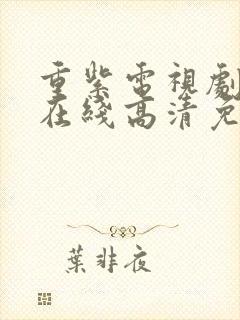 重紫電視劇
在綫高清免
葉非夜